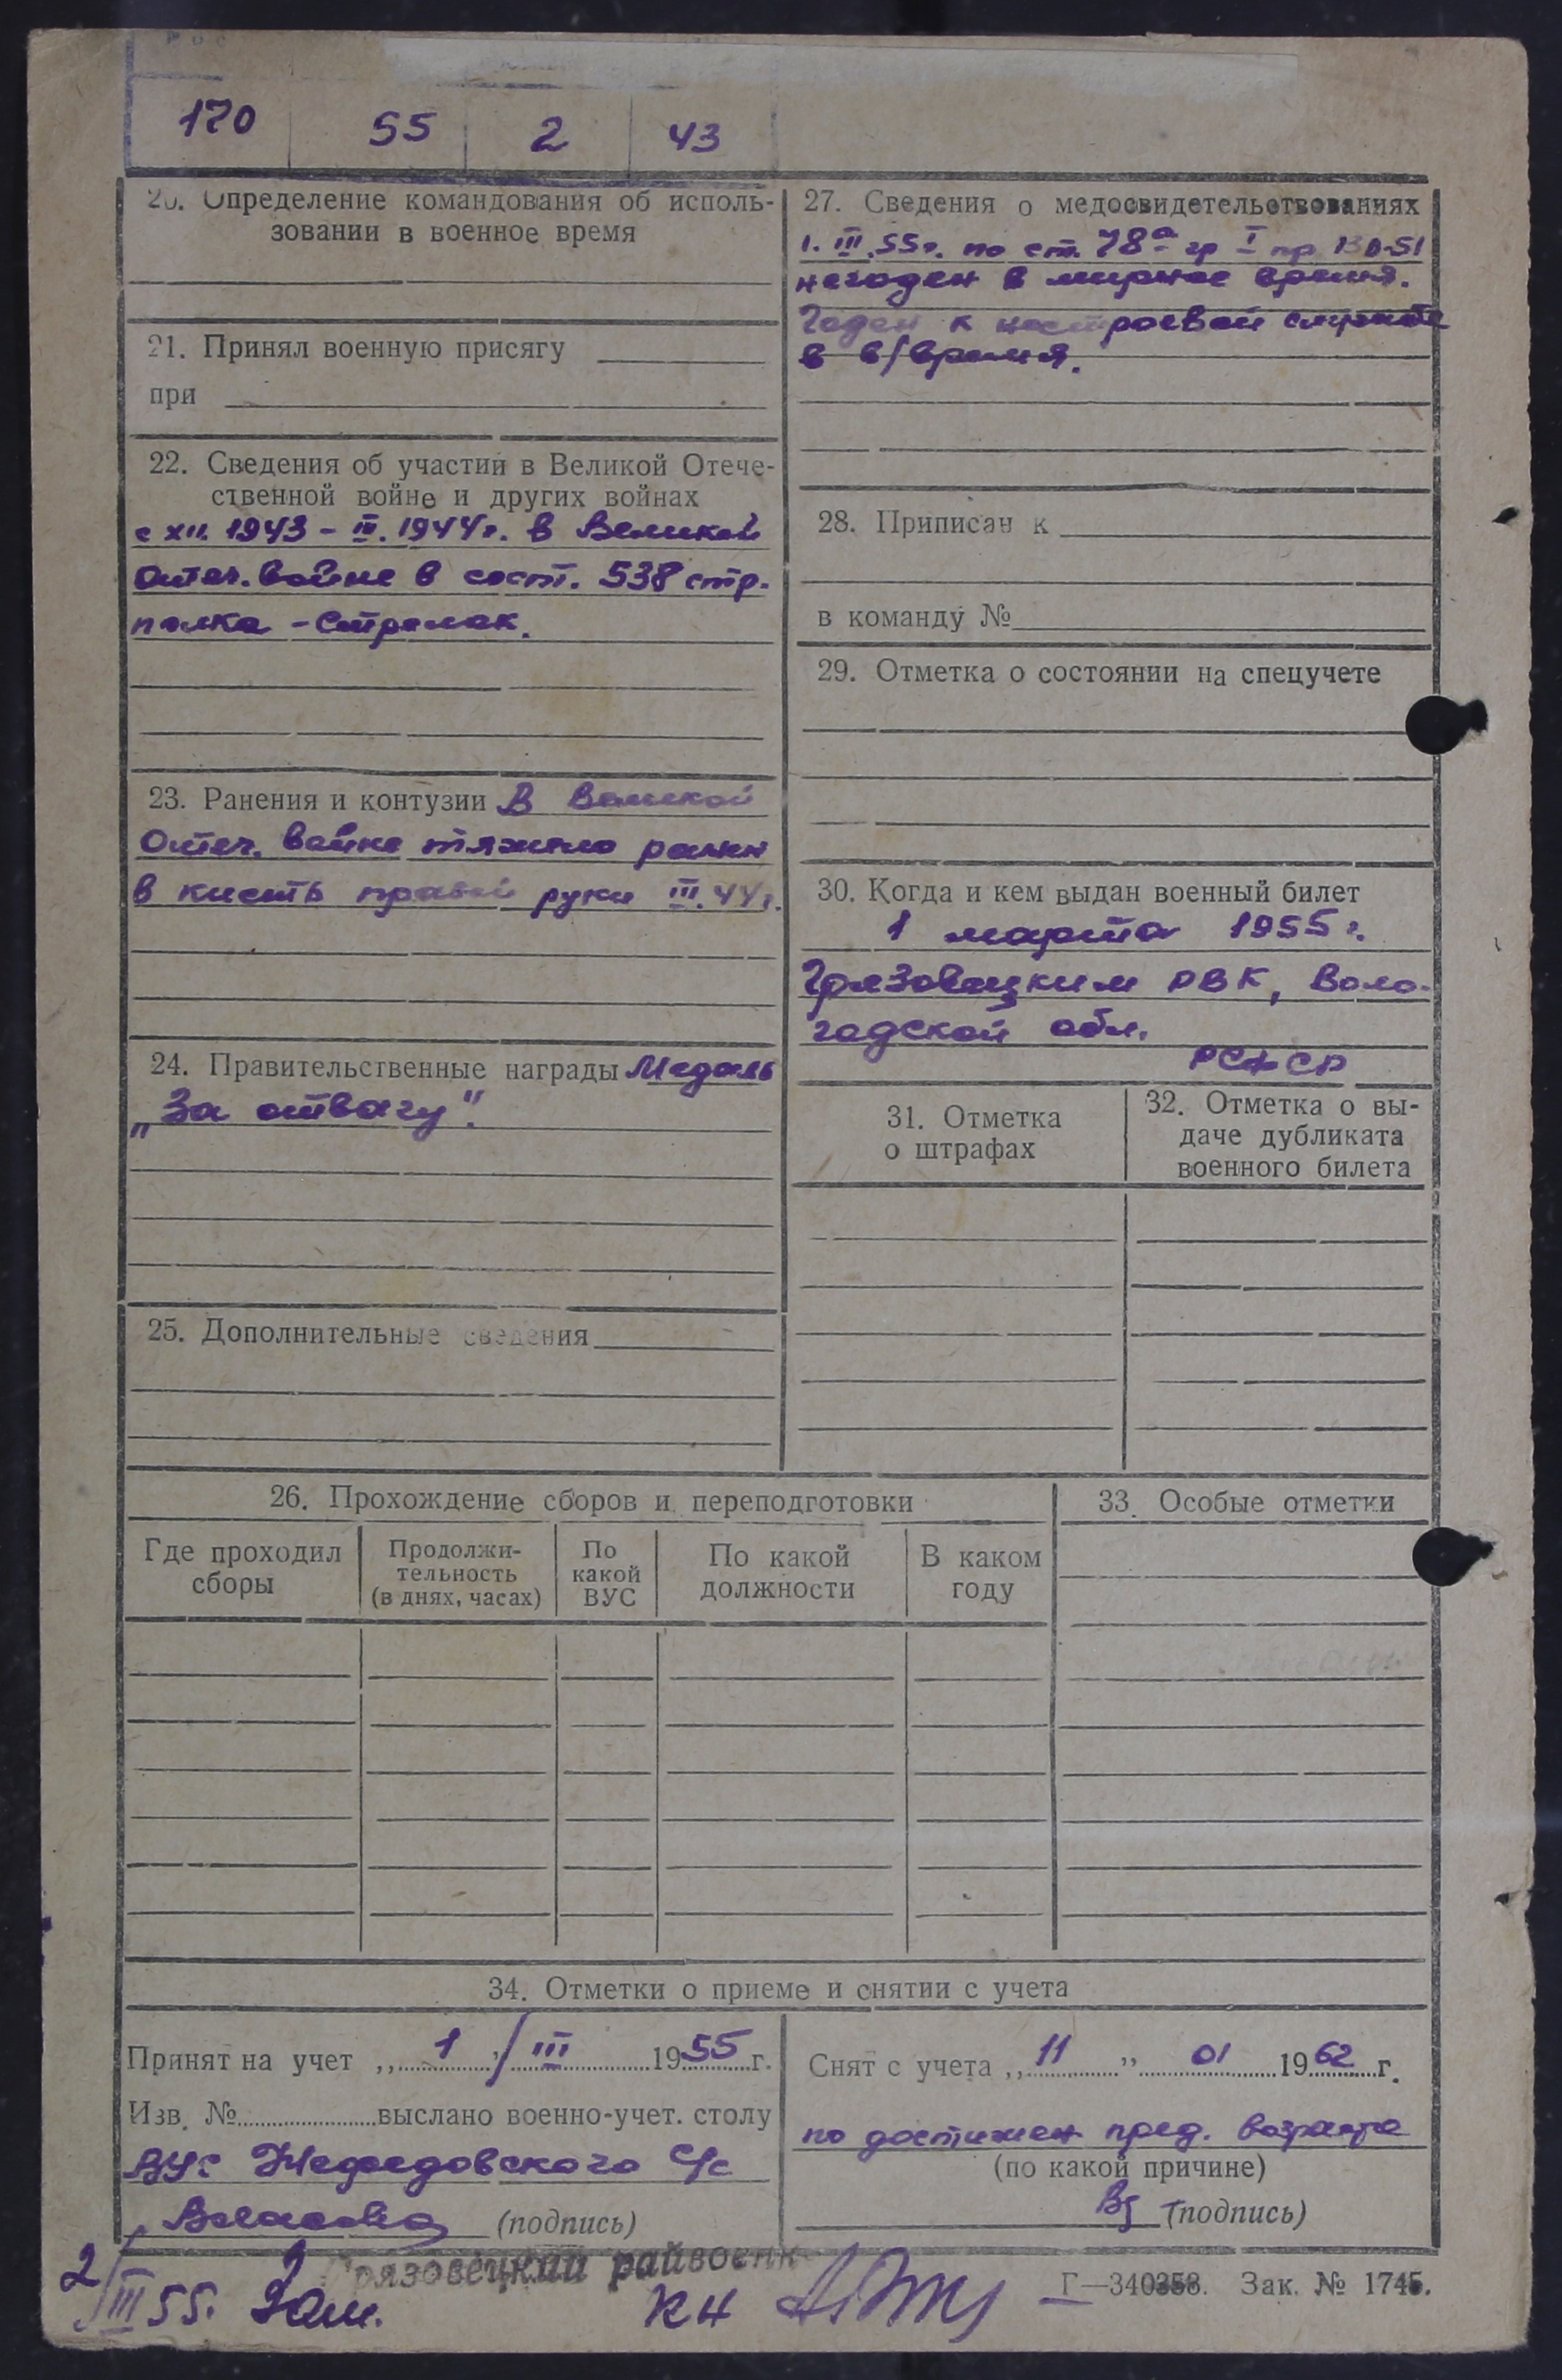 170 55 2 43
20. Определение командования об исполь-
зовании в военное время
21. Принял военную присягу
при
22. Сведения об участии в Великой Отече-
ственной войне и других войнах
с XII. 1943 – III. 1944г. в Великой
Отеч. войне в сост. 538 стр.
полка – Стрелок.
23. Ранения и контузии В Великой
Отеч. войне тяжело ранен
в кисть правой руки III.44г.
24. Правительственные награды Медаль
„За отвагу".
25. Дополнительные сведения
27. Сведения о медосвидетельствованиях
1. III.55г. по ст. 78а гр I пр 130-51
негоден в мирное время.
Годен к нестроевой службе
в в/время.
28. Приписан к
в команду №
29. Отметка о состоянии на спецучете
30. Когда и кем выдан военный билет
1 марта 1955 г.
Грязовецким РВК, Воло-
годской обл.
РСФСР
31. Отметка
о штрафах
32. Отметка о вы-
даче дубликата
военного билета
26. Прохождение сборов и переподготовки
Где проходил
сборы
Продолжи-
тельность
(в днях, часах)
По
какой
ВУС
По какой
должности
В каком
году
33. Особые отметки
34. Отметки о приеме и снятии с учета
Принят на учет „ 1 " III 1955 г.
Изв. № выслано военно-учет. столу
ВУС Нефедовского с/с
(подпись)
Снят с учета „ 11 " 01 1962 г.
по достижен пред. возраста
(по какой причине)
(подпись)
Грязовецкий райвоенк
2/III 55.
Г—340358. Зак. № 1745.